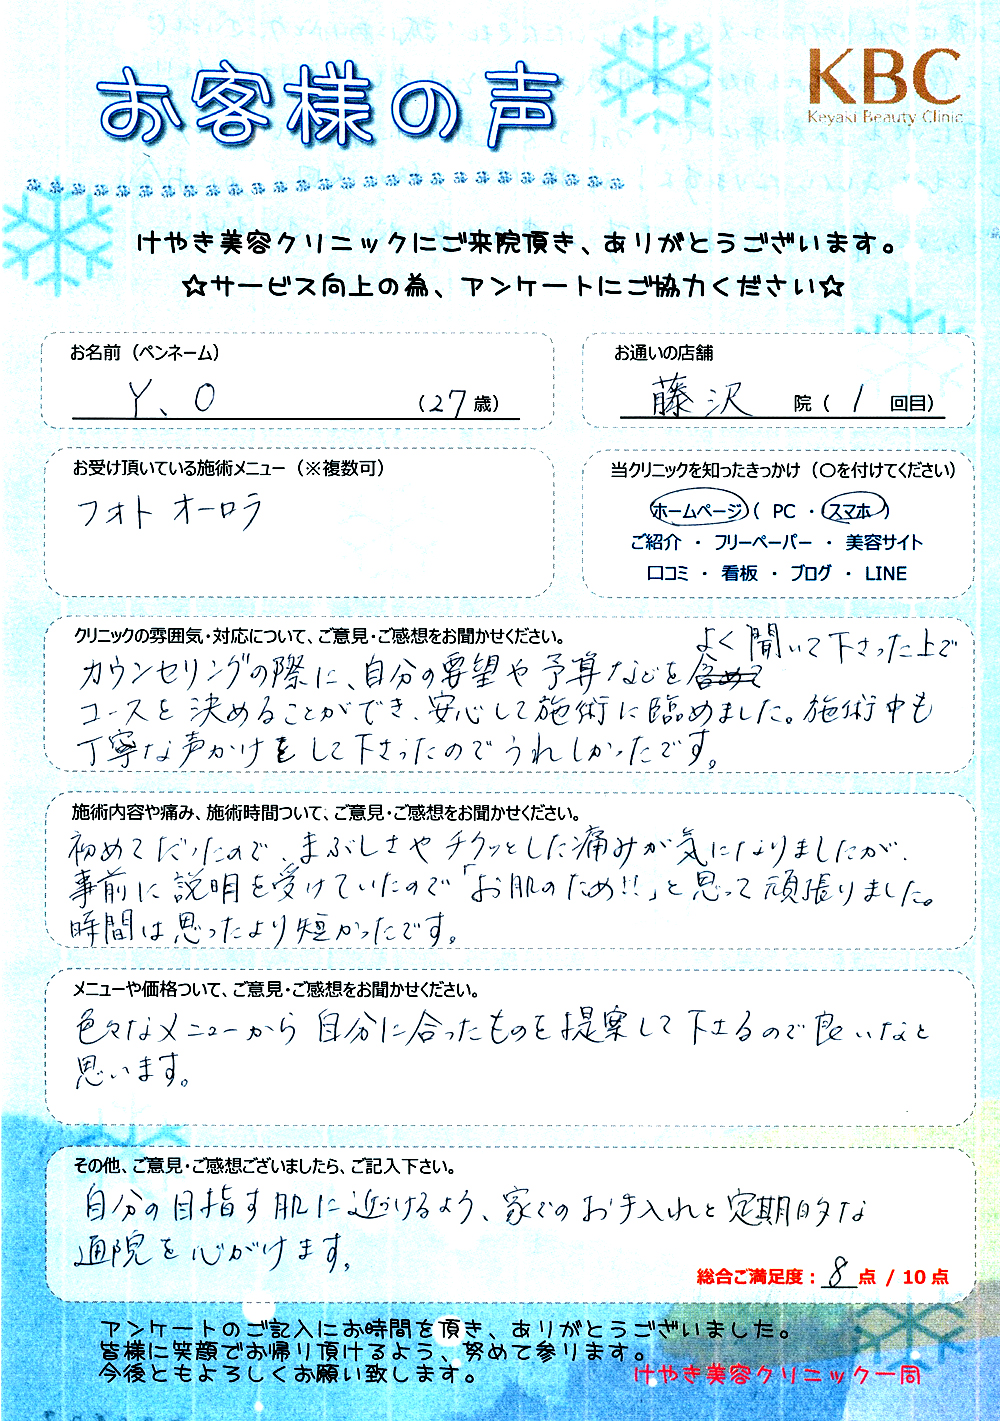 お客様の声
KBC
Keyaki Beauty Clinic
けやき美容クリニックにご来院頂き、ありがとうございます。
☆サービス向上の為、アンケートにご協力ください☆
お名前（ペンネーム）
Y、O（27歳）
お通いの店舗
藤沢 院（ 1 回目）
お受け頂いている施術メニュー（※複数可）
フォト オーロラ
当クリニックを知ったきっかけ（〇を付けてください）
ホームページ（ PC ・ スマホ ）
ご紹介 ・ フリーペーパー ・ 美容サイト
口コミ ・ 看板 ・ ブログ ・ LINE
クリニックの雰囲気・対応について、ご意見・ご感想をお聞かせください。
よく聞いて下さった上で
カウンセリングの際に、自分の要望や予算などを含めて
コースを決めることができ、安心して施術に臨めました。施術中も
丁寧な声かけをして下さったのでうれしかったです。
施術内容や痛み、施術時間ついて、ご意見・ご感想をお聞かせください。
初めてだったので、まぶしさやチクッとした痛みが気になりましたが、
事前に説明を受けていたので「お肌のため!!」と思って頑張りました。
時間は思ったより短かったです。
メニューや価格ついて、ご意見・ご感想をお聞かせください。
色々なメニューから自分に合ったものを提案して下さるので良いなと
思います。
その他、ご意見・ご感想ございましたら、ご記入下さい。
自分の目指す肌に近づけるよう、家でのお手入れと定期的な
通院を心がけます。
総合ご満足度：8点 / 10点
アンケートのご記入にお時間を頂き、ありがとうございました。
皆様に笑顔でお帰り頂けるよう、努めて参ります。
今後ともよろしくお願い致します。
けやき美容クリニック一同